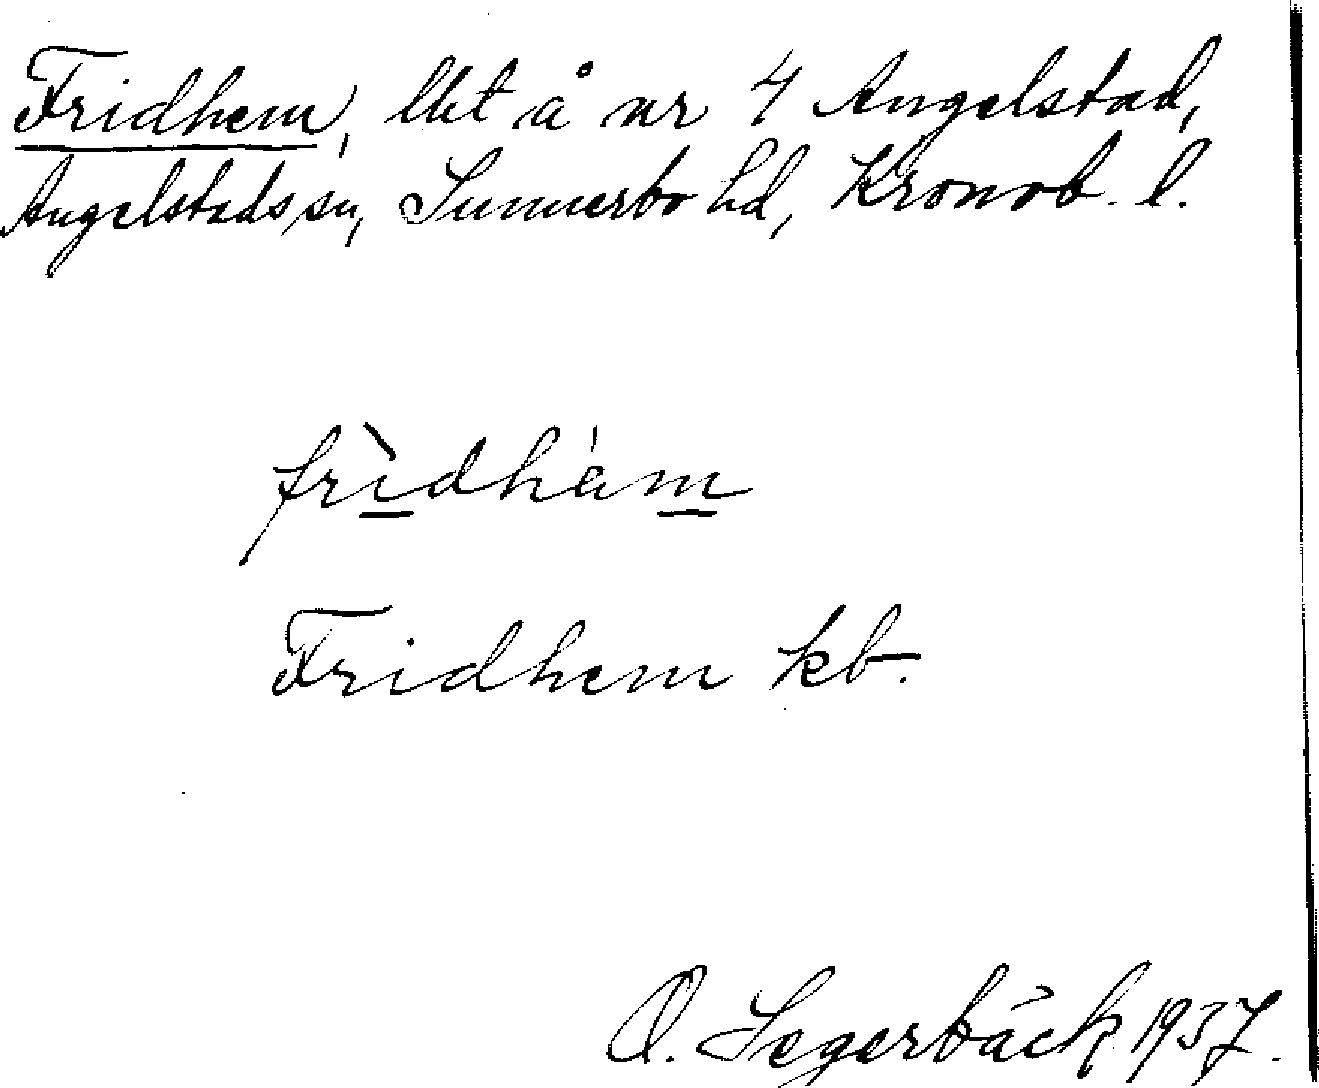 Fridhem, lht å nr 4 Angelstad,
Angelstads sn, Sunnerbo hd, Kronob. l.
frìdhám
Fridhem kb.
O. Segerbäck 1937.